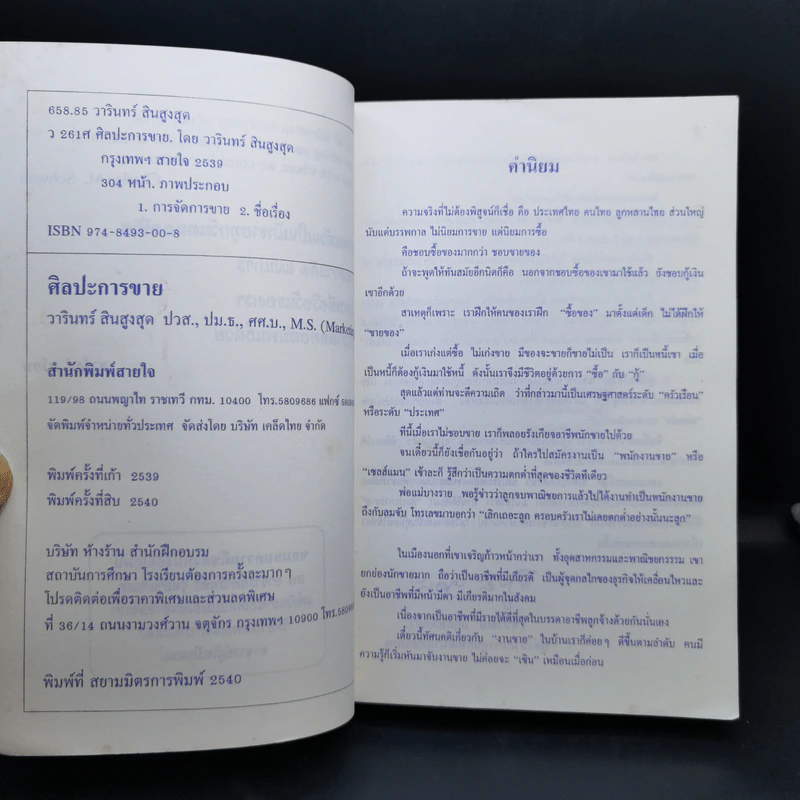 658.85 วารินทร์ สินสูงสุด
ว 261ศ ศิลปะการขาย. โดย วารินทร์ สินสูงสุด
กรุงเทพฯ สายใจ 2539
304 หน้า. ภาพประกอบ
1. การจัดการขาย 2. ชื่อเรื่อง
ISBN 974-8493-00-8
ศิลปะการขาย
วารินทร์ สินสูงสุด ปวส., ปม.ธ., ศศ.บ., M.S. (Marketin
สำนักพิมพ์สายใจ
119/98 ถนนพญาไท ราชเทวี กทม. 10400 โทร.5809686 แฟกซ์
จัดพิมพ์จำหน่ายทั่วประเทศ จัดส่งโดย บริษัท เคล็ดไทย จำกัด
พิมพ์ครั้งที่เก้า 2539
พิมพ์ครั้งที่สิบ 2540
บริษัท ห้างร้าน สำนักฝึกอบรม
สถาบันการศึกษา โรงเรียนต้องการครั้งละมากๆ
โปรดติดต่อเพื่อราคาพิเศษและส่วนลดพิเศษ
ที่ 36/14 ถนนงามวงศ์วาน จตุจักร กรุงเทพฯ 10900 โทร.5809
พิมพ์ที่ สยามมิตรการพิมพ์ 2540
คำนิยม
ความจริงที่ไม่ต้องพิสูจน์ก็เชื่อ คือ ประเทศไทย คนไทย ลูกหลานไทย ส่วนใหญ่
นับแต่บรรพกาล ไม่นิยมการขาย แต่นิยมการซื้อ
คือชอบซื้อของมากกว่า ชอบขายของ
ถ้าจะพูดให้ทันสมัยอีกนิดก็คือ นอกจากชอบซื้อของเขามาใช้แล้ว ยังชอบกู้เงิน
เขาอีกด้วย
สาเหตุก็เพราะ เราฝึกให้คนของเราฝึก “ซื้อของ” มาตั้งแต่เด็ก ไม่ได้ฝึกให้
“ขายของ”
เมื่อเราเก่งแต่ซื้อ ไม่เก่งขาย มีของจะขายก็ขายไม่เป็น เราก็เป็นหนี้เขา เมื่อ
เป็นหนี้ก็ต้องกู้เงินมาใช้หนี้ ดังนั้นเราจึงมีชีวิตอยู่ด้วยการ “ซื้อ” กับ “กู้”
สุดแล้วแต่ท่านจะตีความเถิด ว่าที่กล่าวมานี้เป็นเศรษฐศาสตร์ระดับ “ครัวเรือน”
หรือระดับ “ประเทศ”
ทีนี้เมื่อเราไม่ชอบขาย เราก็พลอยรังเกียจอาชีพนักขายไปด้วย
จนเดี๋ยวนี้ก็ยังเชื่อกันอยู่ว่า ถ้าใครไปสมัครงานเป็น “พนักงานขาย” หรือ
“เซลส์แมน” เข้าละก็ รู้สึกว่าเป็นความตกต่ำที่สุดของชีวิตทีเดียว
พ่อแม่บางราย พอรู้ข่าวว่าลูกจบพาณิชยการแล้วไปได้งานทำเป็นพนักงานขาย
ถึงกับลมจับ โทรเลขมาบอกว่า “เลิกเถอะลูก ครอบครัวเราไม่เคยตกต่ำอย่างนั้นนะลูก”
ในเมืองนอกที่เขาเจริญก้าวหน้ากว่าเรา ทั้งอุตสาหกรรมและพาณิชยกรรม เขา
ยกย่องนักขายมาก ถือว่าเป็นอาชีพที่มีเกียรติ เป็นผู้จุดกลไกของธุรกิจให้เคลื่อนไหวและ
ยังเป็นอาชีพที่มีหน้ามีตา มีเกียรติมากในสังคม
เนื่องจากเป็นอาชีพที่มีรายได้ดีที่สุดในบรรดาอาชีพลูกจ้างด้วยกันนั่นเอง
เดี๋ยวนี้ทัศนคติเกี่ยวกับ “งานขาย” ในบ้านเราก็ค่อยๆ ดีขึ้นตามลำดับ คนมี
ความรู้ก็เริ่มหันมาจับงานขาย ไม่ค่อยจะ “เขิน” เหมือนเมื่อก่อน